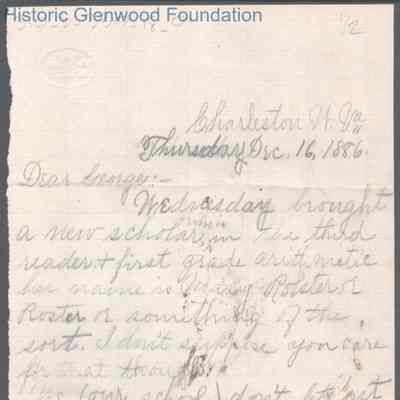 Historic Glenwood Foundation
1/2
Charleston W. Va
Thursday Dec. 16, 1886.
Dear George:-
Wednesday brought
a new scholar, in the third
reader + first grade arithmetic
her name is Rolster or
Roster or something of the
sort. I don't suppose you care
for that though.
(our school) don't